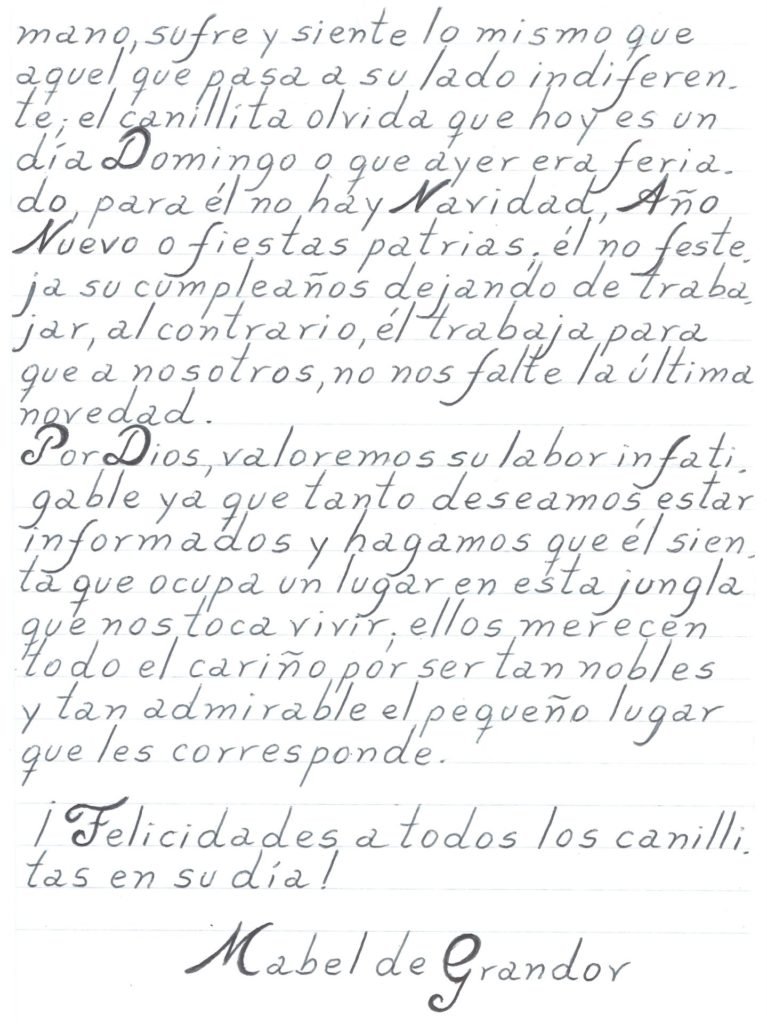 mano, sufre y siente lo mismo que
aquel que pasa a su lado indiferen-
te; el canillita olvida que hoy es un
día Domingo o que ayer era feria-
do, para él no hay Navidad, Año
Nuevo o fiestas patrias; él no feste-
ja su cumpleaños dejando de traba-
jar, al contrario, él trabaja para
que a nosotros, no nos falte la última
novedad.
Por Dios, valoremos su labor infati-
gable ya que tanto deseamos estar
informados y hagamos que él sien-
ta que ocupa un lugar en esta jungla
que nos toca vivir; ellos merecen
todo el cariño por ser tan nobles
y tan admirable el pequeño lugar
que les corresponde.
¡Felicidades a todos los canilli-
tas en su día!
Mabel de Grandor